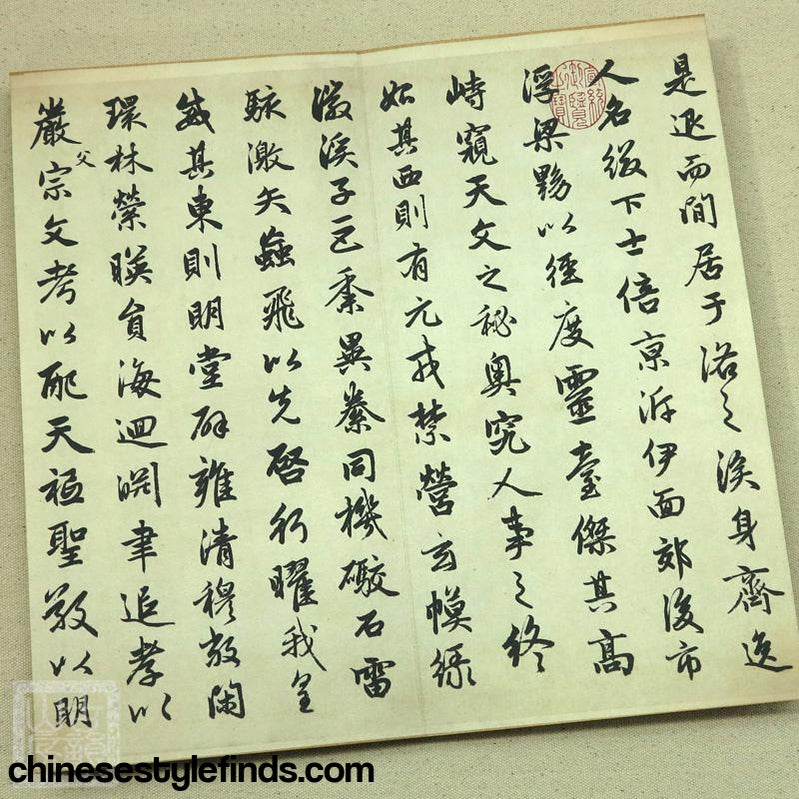 是退而閒居于洛之涘身齊逸
人名綴下士倍京泝伊面郊後市
浮梁黝以徑度靈臺傑其高
峙窺天文之秘奧究人事之終
始其西則有元戎禁營玄幙綠
徽溪子巨黍異絭同機礮石雷
駭激矢蝱飛以先啓行曜我皇
威其東則明堂辟雍清穆敞閑
環林縈暎員海迴淵聿追孝以
嚴父宗文考以配天祗聖敬以明
chinesestylefinds.com